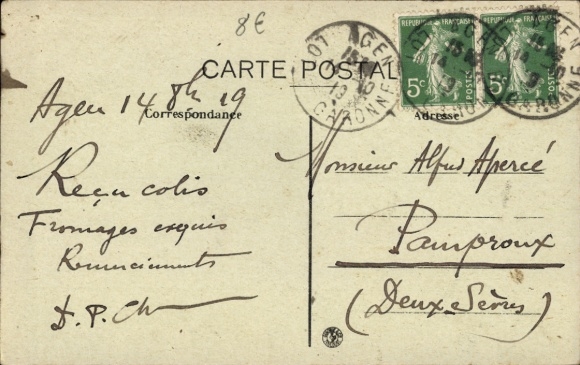 8€
CARTE POSTALE
Correspondance
Adresse
Agen 14 8bre 19
Reçu colis
Fromages exquis
Remerciements
D. P.
Monsieur Alfred Apercé
Pamproux
(Deux-Sèvres)
REPUBLIQUE FRANÇAISE
5c
POSTES
REPUBLIQUE FRANÇAISE
5c
POSTES
AGEN
GARONNE